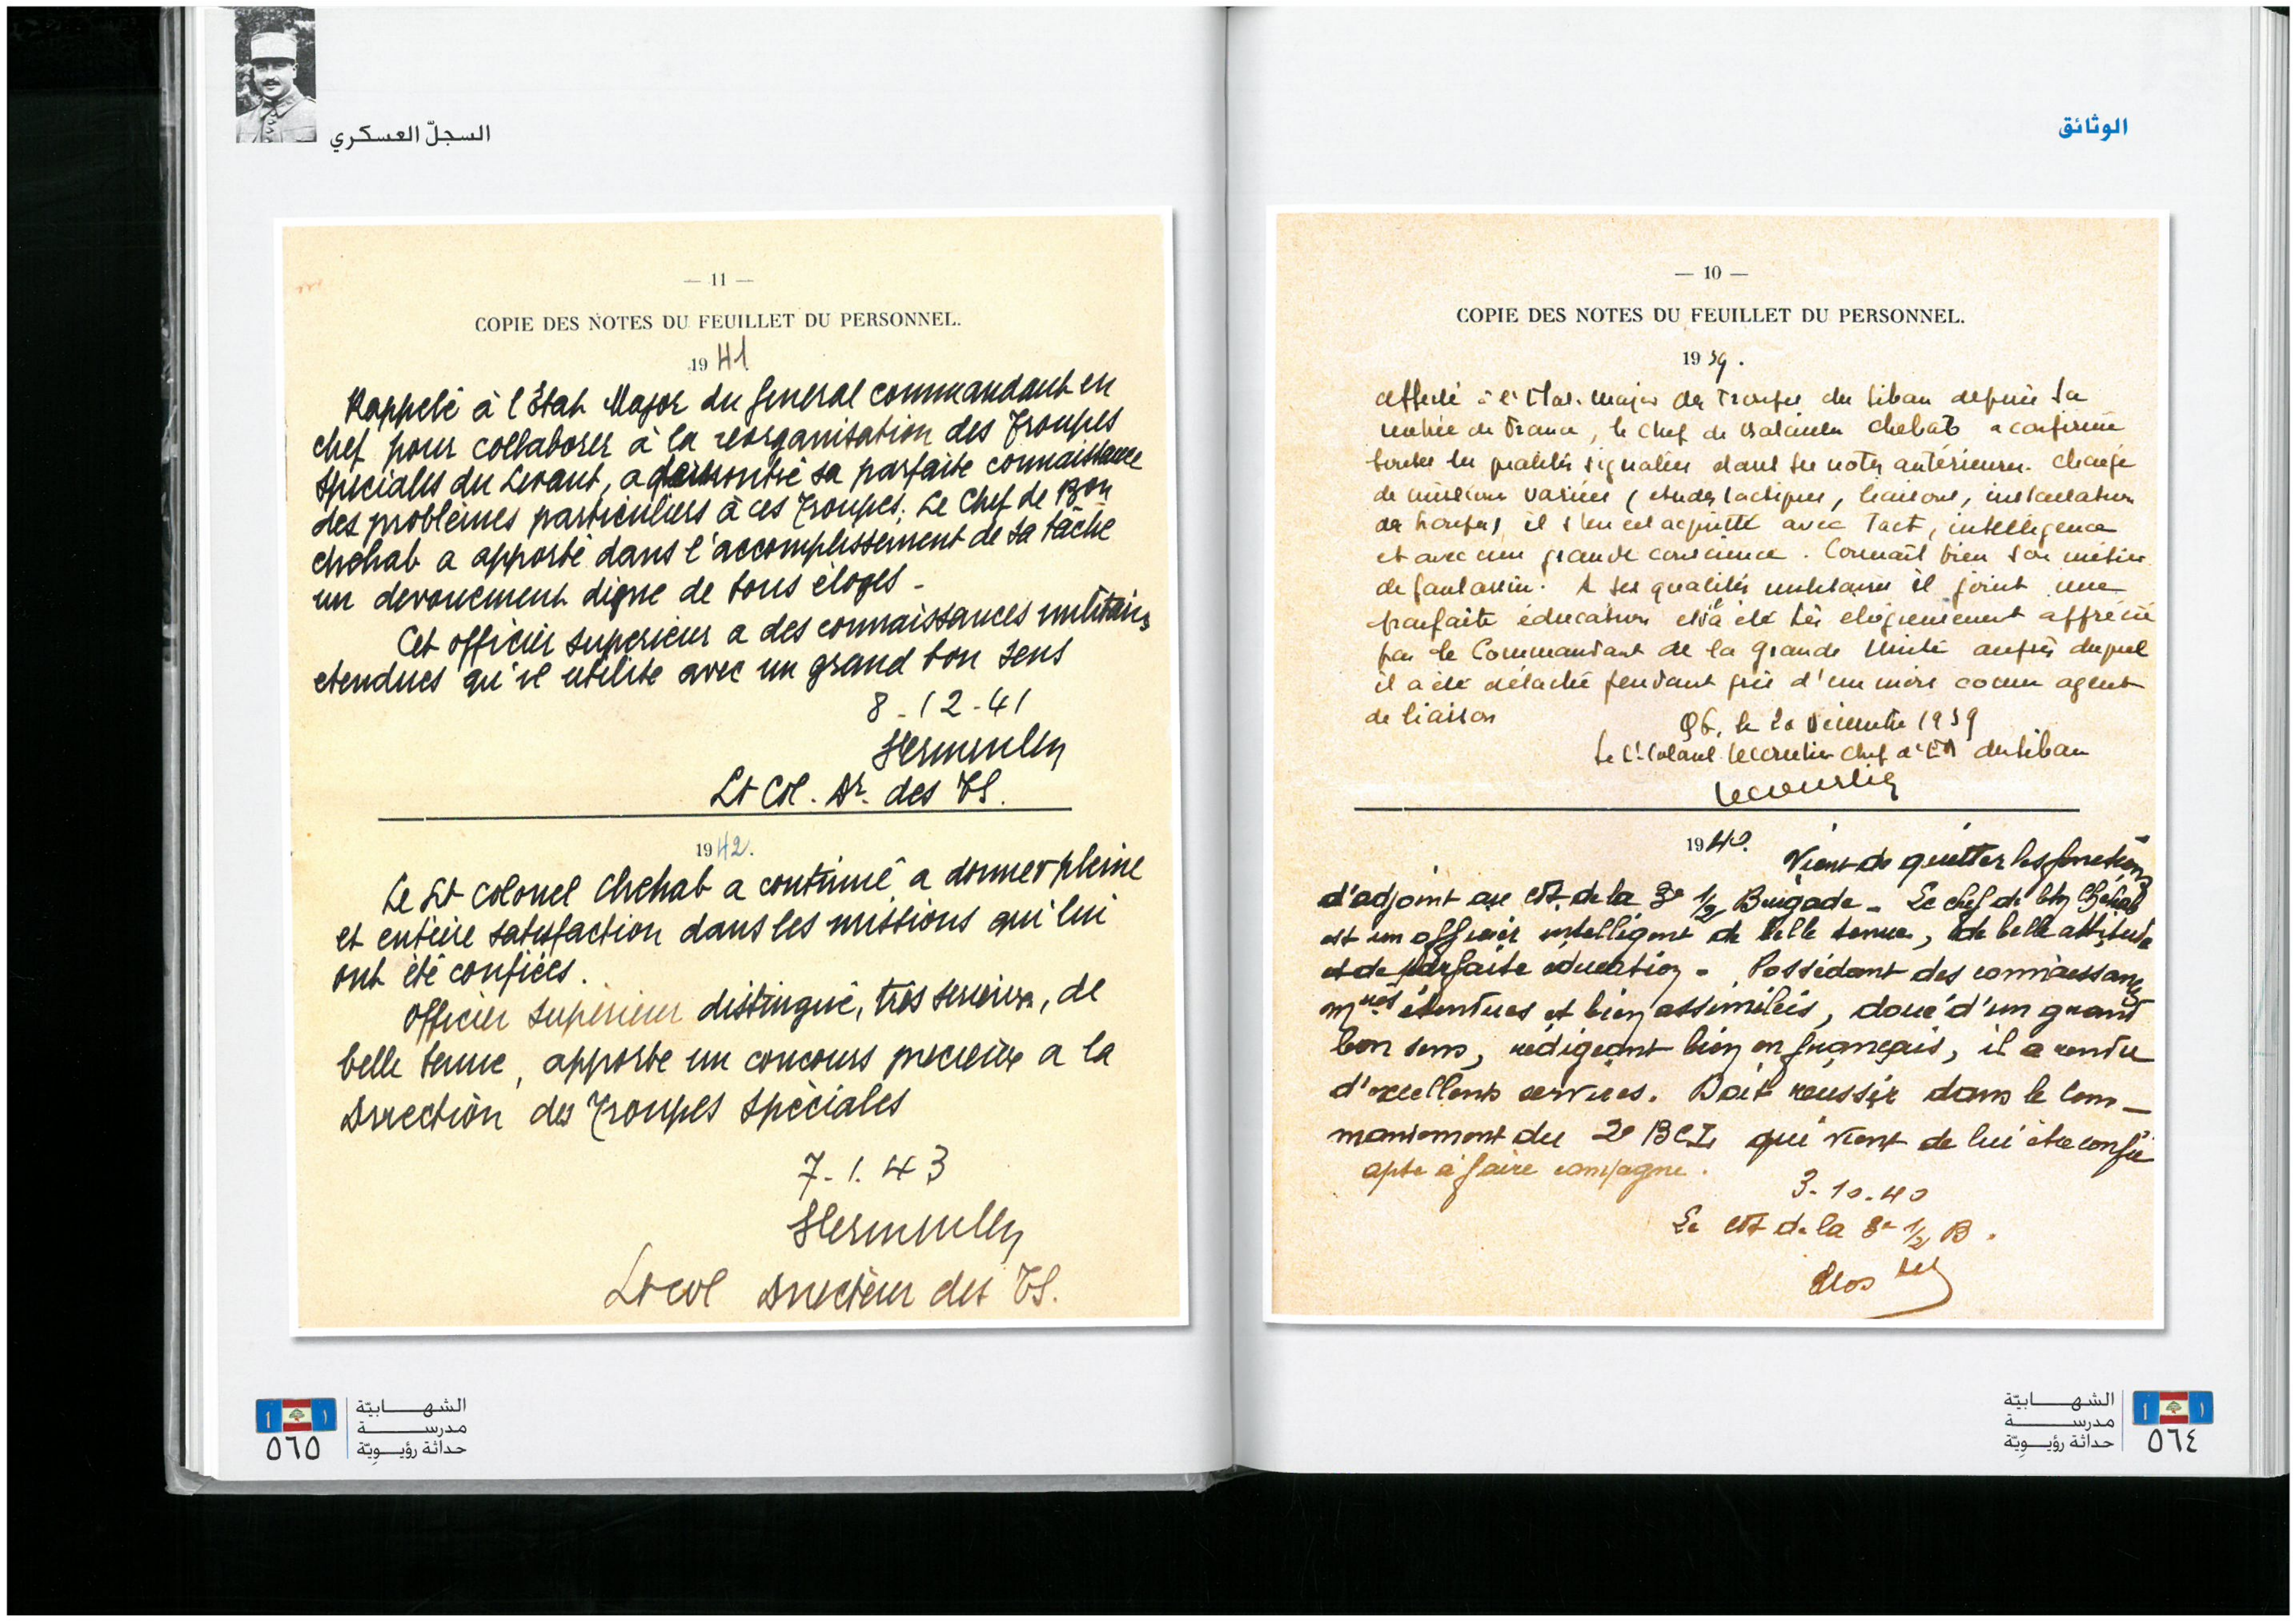 الوثائق
— 10 —
COPIE DES NOTES DU FEUILLET DU PERSONNEL.
1939.
affecté à l'Etat-Major des Troupes du Liban depuis sa
rentrée de France, le Chef de Bataillon Chehab a confirmé
toutes les qualités signalées dans ses notes antérieures. Chargé
de missions variées (etudes tactiques, liaisons, installation
de troupes) il s'en est acquitté avec tact, intelligence
et avec une grande conscience. Connaît bien son métier
de fantassin. A ses qualités militaires il joint une
parfaite éducation et a été très élogieusement apprécié
par le Commandant de la Grande Unité auprès duquel
il a été détaché pendant près d'un mois comme agent
de liaison
le 20 Décembre 1939
Le Lt Colonel Lecourtier Chef d'EM du Liban
Lecourtier
1940. Vient de quitter les fonctions
d'adjoint au Cdt de la 3e 1/2 Brigade - Le chef de btn Chehab
est un officier intelligent de belle tenue, de belle attitude
et de parfaite éducation - Possédant des connaissances
mres étendues et bien assimilées, doué d'un grand
bon sens, rédigeant bien en français, il a rendu
d'excellents services. Doit réussir dans le com-
mandement du 2e BCL qui vient de lui être confié
apte à faire campagne.
3-10-40
Le Cdt de la 3e 1/2 B.
الشهابيّة
مدرسة
حداثة رؤيويّة
٥٦٤
السجلّ العسكري
— 11 —
COPIE DES NOTES DU FEUILLET DU PERSONNEL.
1941
Rappelé à l'État Major du General commandant en
chef pour collaborer à la réorganisation des Troupes
Spéciales du Levant, a démontré sa parfaite connaissance
des problèmes particuliers à ces Troupes. Le Chef de Bon
Chehab a apporté dans l'accomplissement de sa tâche
un devouement digne de tous éloges -
Cet officier superieur a des connaissances militaires
etendues qu'il utilise avec un grand bon sens
8-12-41
Lt Col. Dr. des TS.
1942.
Le Lt Colonel Chehab a continué a donner pleine
et entière satisfaction dans les missions qui lui
ont été confiées.
Officier supérieur distingué, très serieux, de
belle tenue, apporte un concours precieux a la
Direction des Troupes Spéciales
7-1.43
Lt col Directeur des TS.
الشهابيّة
مدرسة
حداثة رؤيويّة
٥٦٥